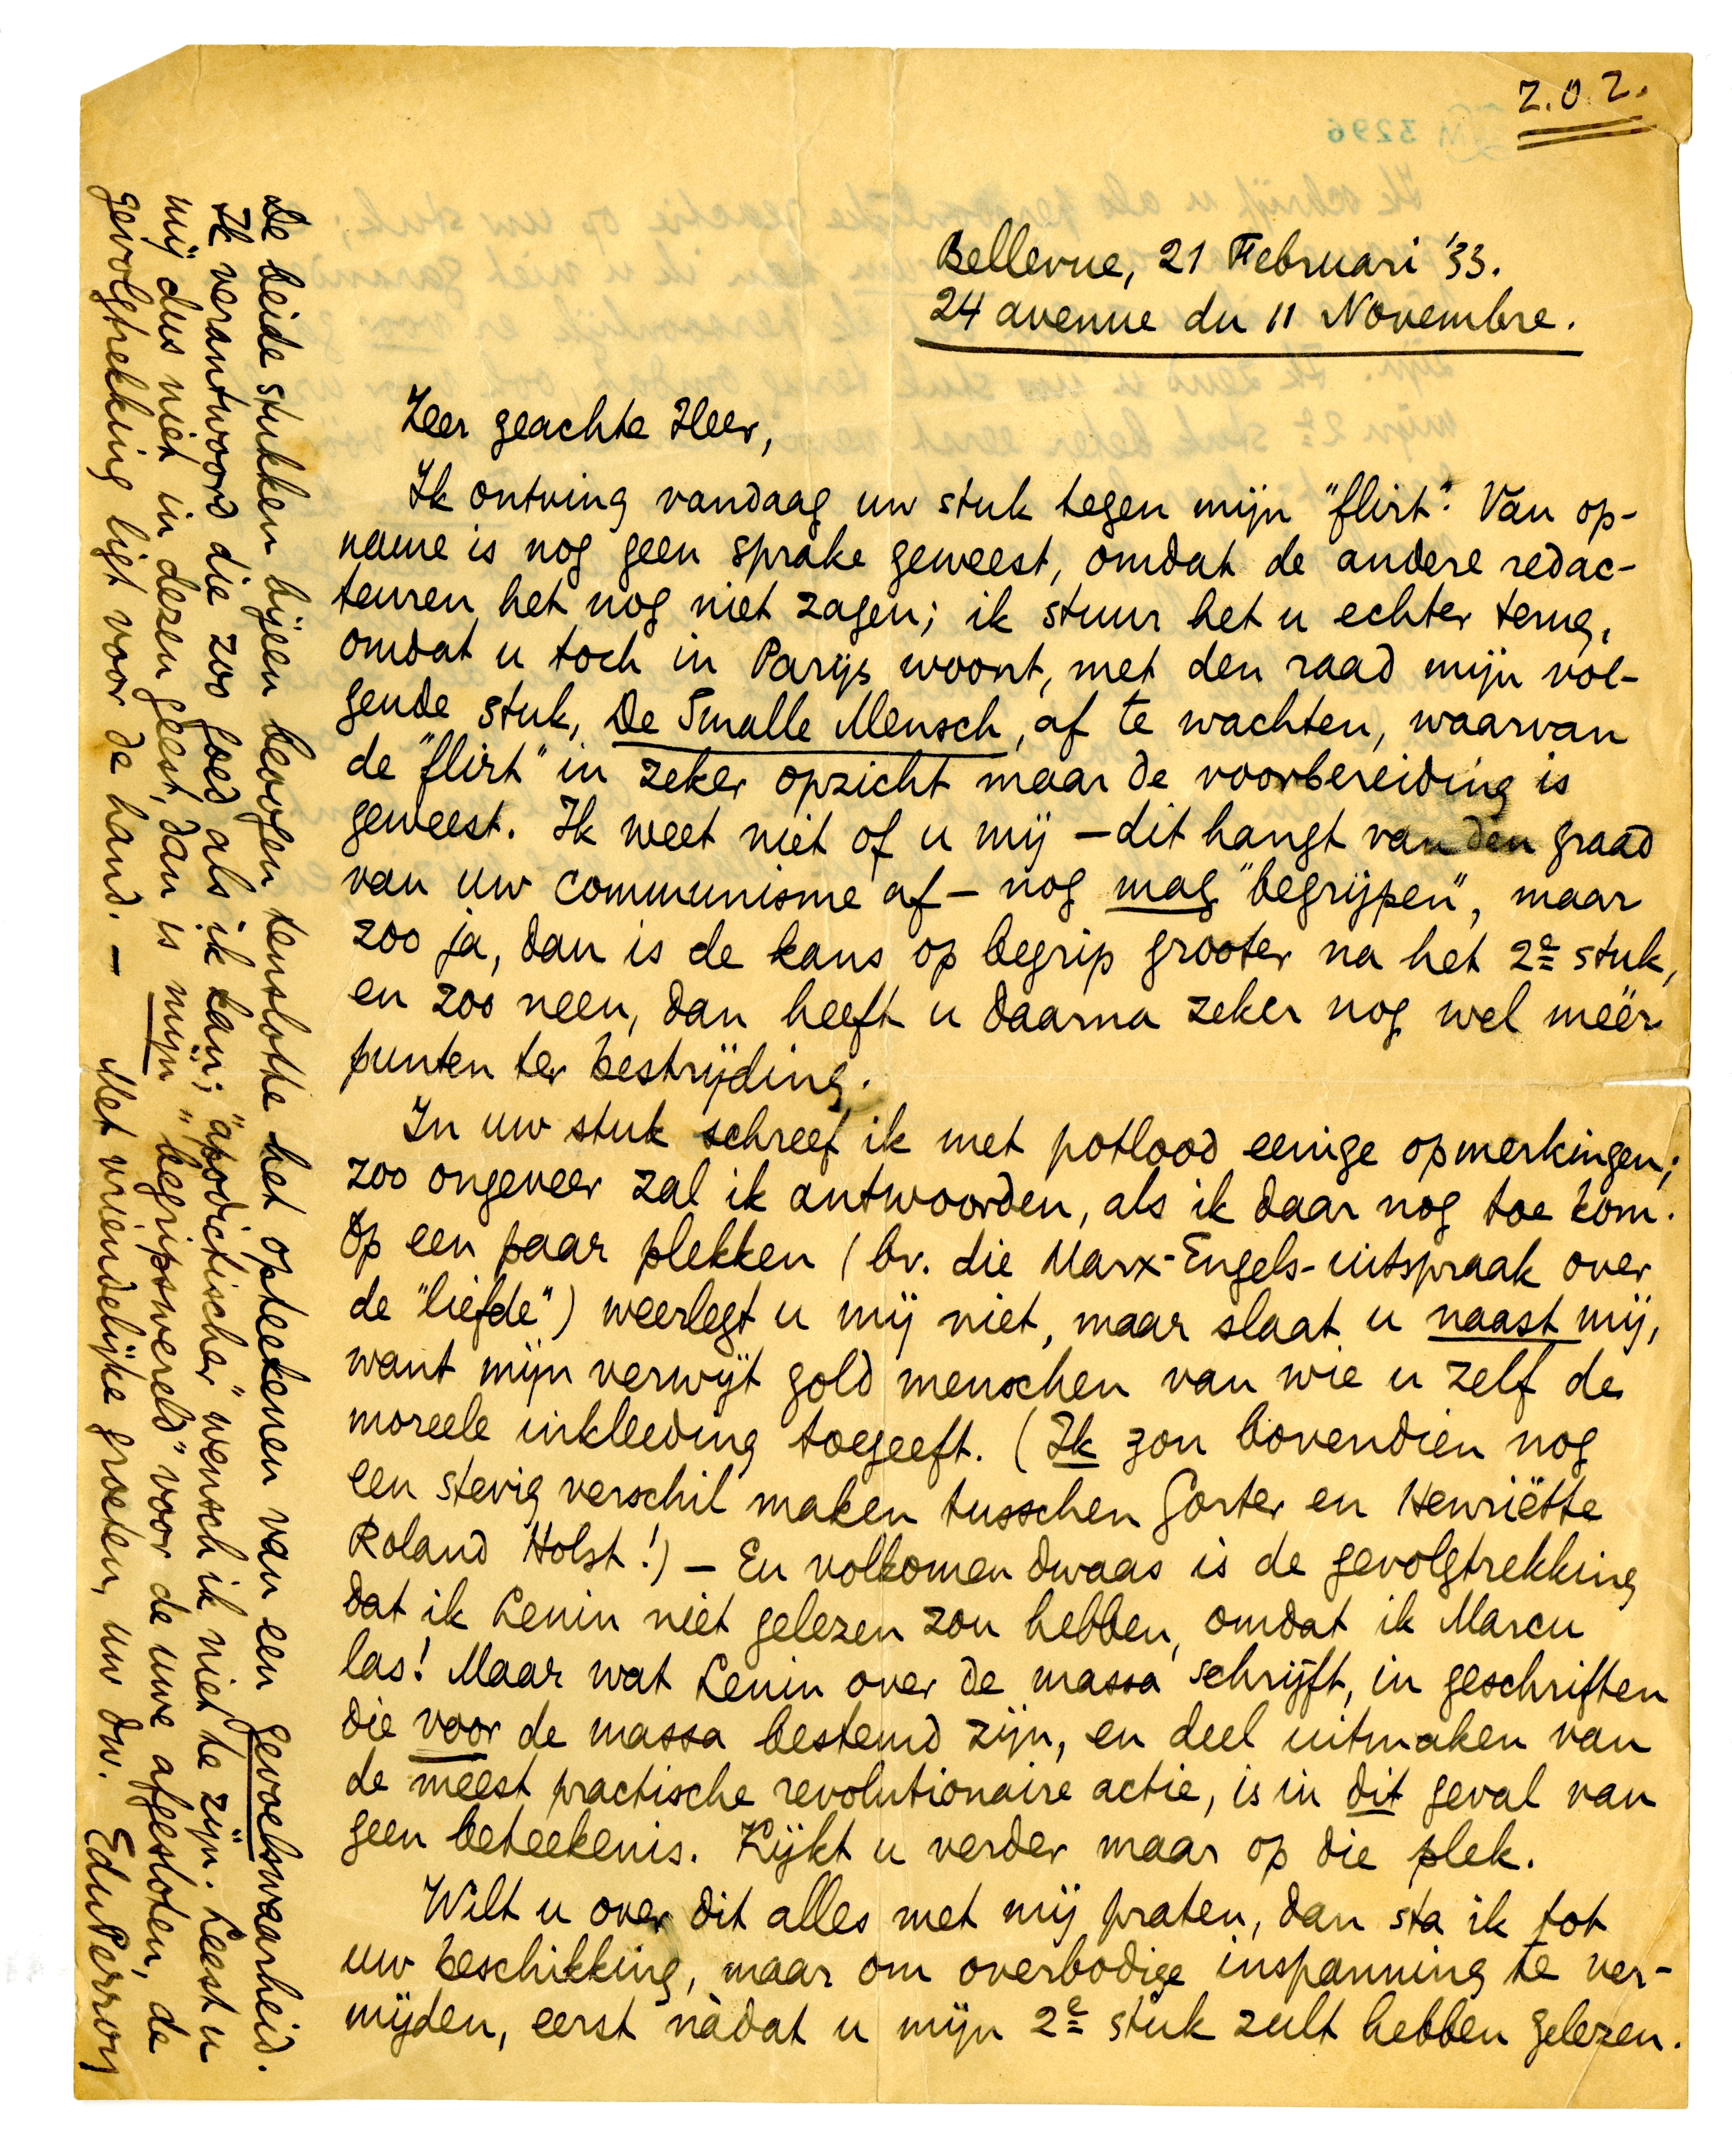 Z.O.Z.
Bellevue, 21 Februari '33.
24 avenue du 11 Novembre.
Zeer geachte Heer,
Ik ontving vandaag uw stuk tegen mijn "flirt". Van op-
name is nog geen sprake geweest, omdat de andere redac-
teuren het nog niet zagen; ik stuur het u echter terug,
omdat u toch in Parijs woont, met den raad mijn vol-
gende stuk, De Smalle Mensch, af te wachten, waarvan
de "flirt" in zeker opzicht maar de voorbereiding is
geweest. Ik weet niet of u mij — dit hangt van den graad
van uw communisme af — nog mag "begrijpen", maar
zoo ja, dan is de kans op begrip grooter na het 2e stuk,
en zoo neen, dan heeft u daarna zeker nog wel méér
punten ter bestrijding.
In uw stuk schreef ik met potlood eenige opmerkingen;
zoo ongeveer zal ik antwoorden, als ik daar nog toe kom.
Op een paar plekken (bv. die Marx-Engels-uitspraak over
de "liefde") weerlegt u mij niet, maar slaat u naast mij,
want mijn verwijt gold menschen van wie u zelf de
moreele inkleeding toegeeft. (Ik zou bovendien nog
een stevig verschil maken tusschen Gorter en Henriëtte
Roland Holst!) — En volkomen dwaas is de gevolgtrekking
dat ik Lenin niet gelezen zou hebben, omdat ik Marcu
las! Maar wat Lenin over de massa schrijft, in geschriften
die voor de massa bestemd zijn, en deel uitmaken van
de meest practische revolutionaire actie, is in dit geval van
geen beteekenis. Kijkt u verder maar op die plek.
Wilt u over dit alles met mij praten, dan sta ik tot
uw beschikking, maar om overbodige inspanning te ver-
mijden, eerst nàdat u mijn 2e stuk zult hebben gelezen.
De beide stukken bijeen beoogen tenslotte het opteekenen van een gevoelswaarheid.
Ik verantwoord die zoo goed als ik kan; "apodictischer" wensch ik niet te zijn. Leest u
mij dus niet in dezen geest, dan is mijn "begripswereld" voor de uwe afgesloten, de
gevolgtrekking ligt voor de hand. — Met vriendelijke groeten, uw dw. EduPerron
3296